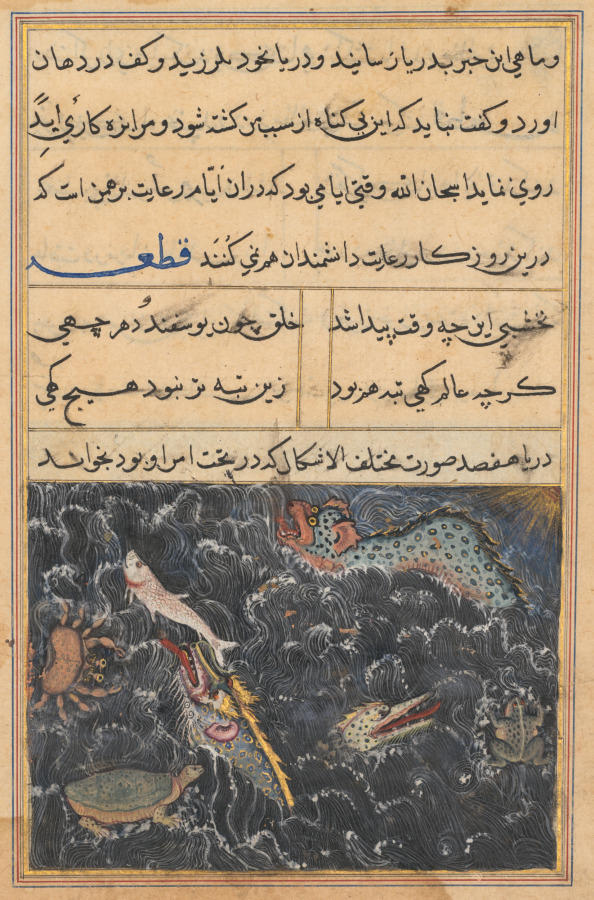 و ماهی این خبر بدریا رسانید و دریا بخود بلرزید و کف در دهان
اورد و کفت نباید که این بی کناه از سبب من کشته شود و مرا بزه کاری ابد
روی نماید اسبحان الله وقتی ایامی بود که دران ایام رعایت برهمن است که
درین روزکار رعایت دانشمندان هم نمی کنند قطعه
نخشبی این چه وقت پیدا شد خلق چون یوسفند و دهر چهی
کرچه عالم کهی تبه هم بود زین تبه تر نبود هیچ کهی
دریا هفصد صورت مختلف الاشکال که در تحت امر او بود بخواند